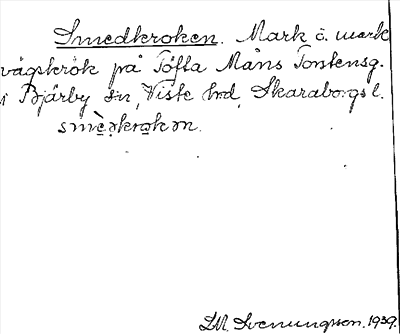 Smedkroken. Mark å. mark
vägskrök på Töfta Måns Tontensg.
i Bjärby sn, Viste hd, Skaraborgs l.
smèəkrokən.
S.M. Svenungsson. 1939.